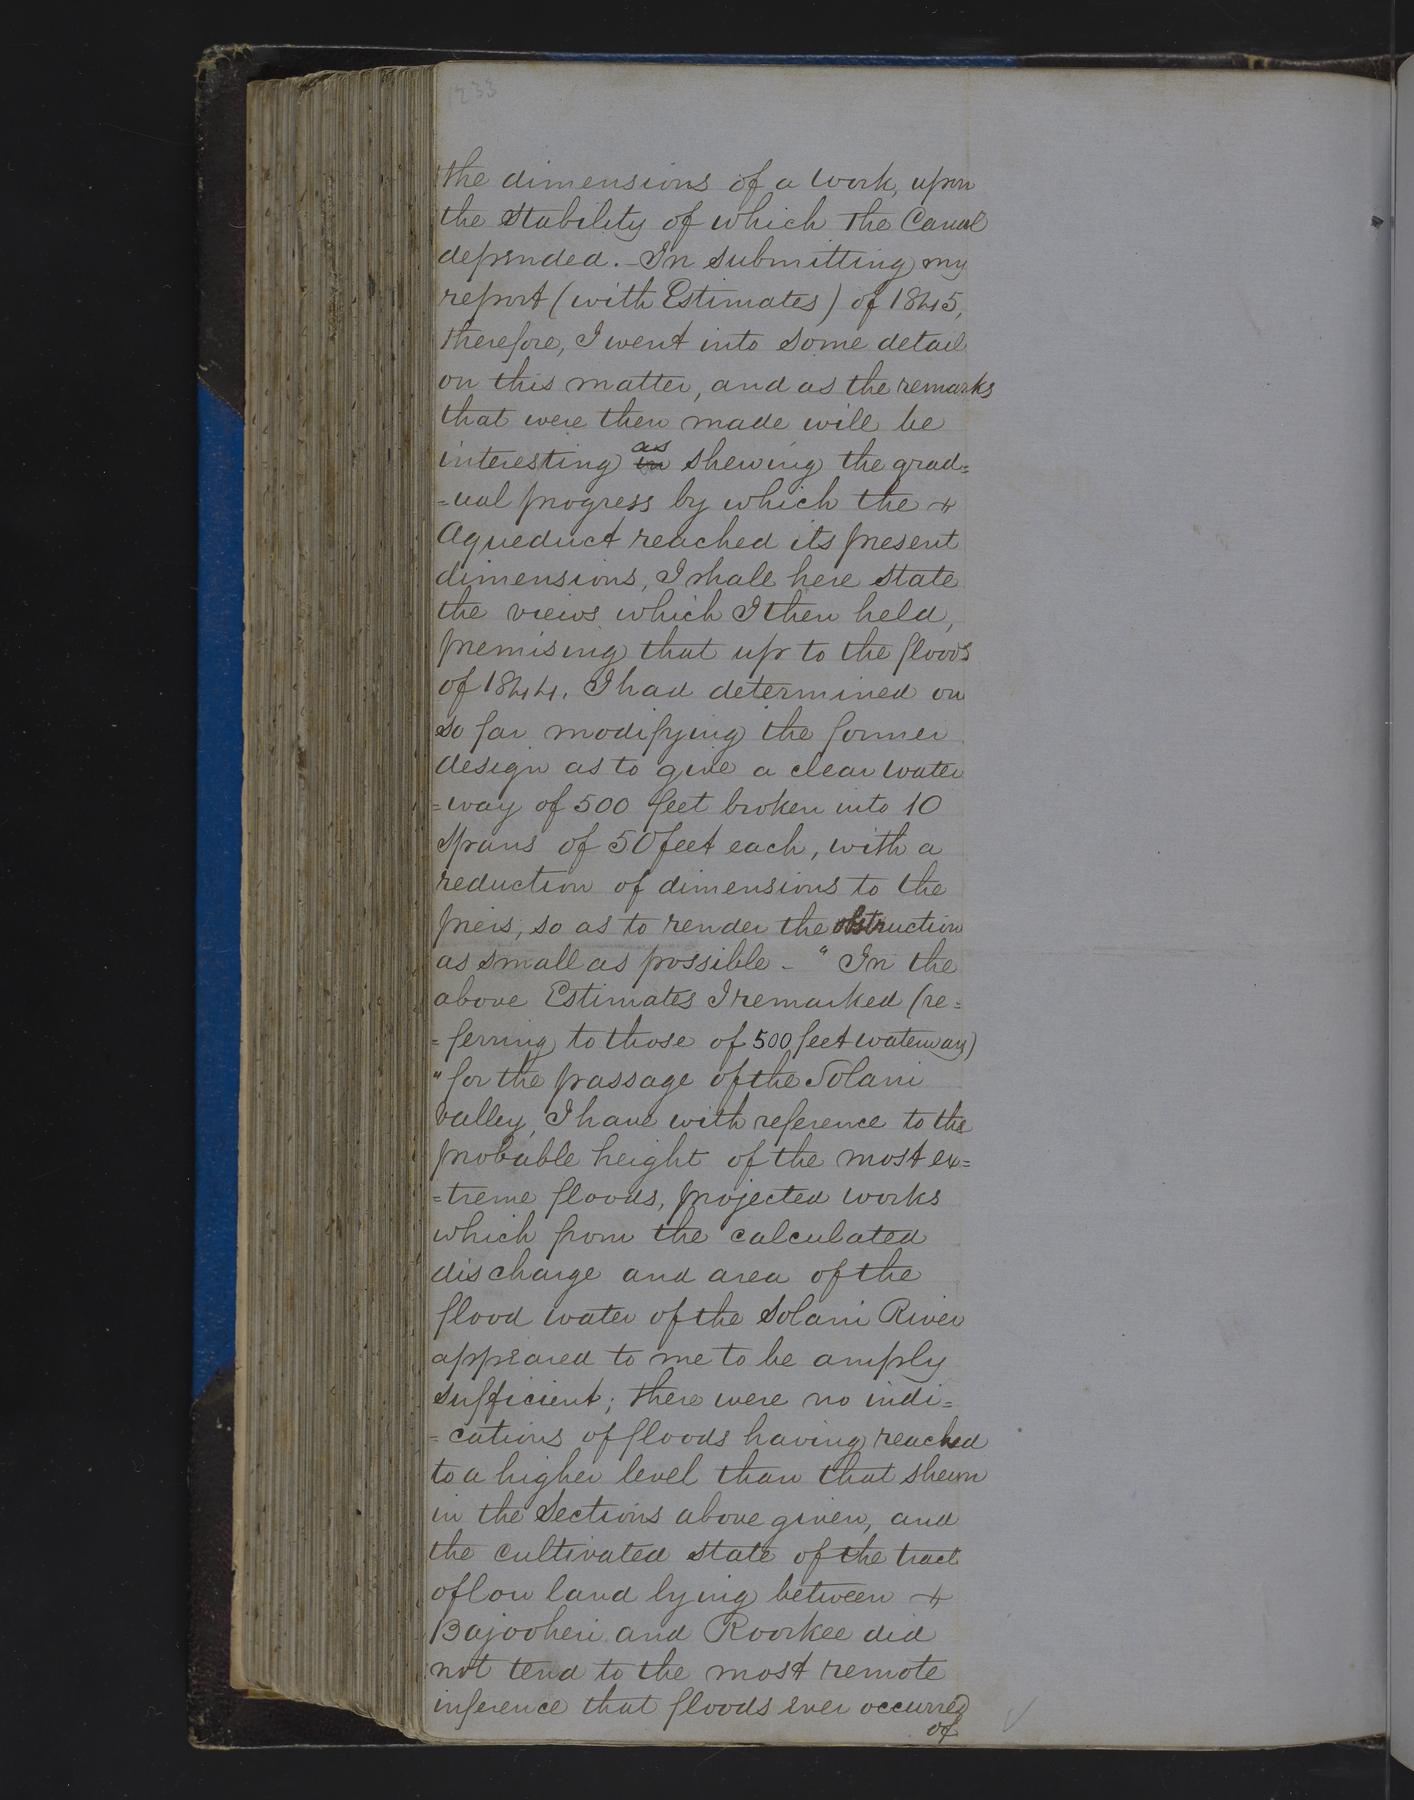 1233
the dimensions of a work, upon
the stability of which the Canal
depended. - In submitting my
report (with Estimates) of 1845,
therefore, I went into some detail
on this matter, and as the remarks
that were then made will be
interesting in as shewing the grad=
=ual progress by which the
Aqueduct reached its present
dimensions, I shall here state
the views which I then held,
premising that up to the floods
of 1844. I had determined on
so far modifying the former
design as to give a clear water
=way of 500 feet broken into 10
spans of 50 feet each, with a
reduction of dimensions to the
piers, so as to render the obstruction
as small as possible - " In the
above Estimates I remarked (re=
=ferring to those of 500 feet waterway)
"for the passage of the Solani
valley, I have with reference to the
probable height of the most ex=
=treme floods, projected works
which from the calculated
discharge and area of the
flood water of the Solani River
appeared to me to be amply
sufficient; there were no indi=
=cations of floods having reached
to a higher level than that shewn
in the Sections above given, and
the cultivated state of the tract
of low land lying between
Bajooheri and Roorkee did
not tend to the most remote
inference that floods ever occurred
of